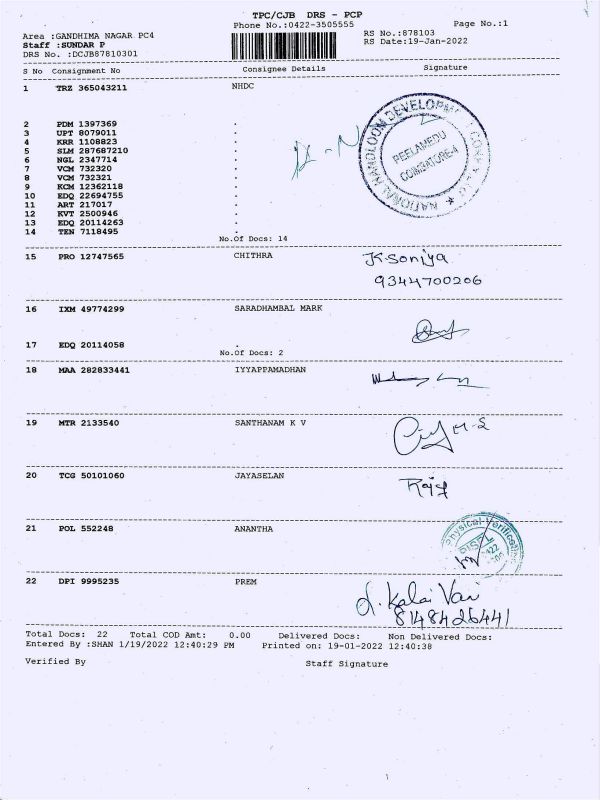 TPC/CJB DRS - PCP
Phone No.:0422-3505555
Page No.:1
Area :GANDHIMA NAGAR PC4
Staff :SUNDAR P
DRS No. :DCJB87810301
RS No.:878103
RS Date:19-Jan-2022
S No Consignment No Consignee Details Signature
1 TRZ 365043211 NHDC
2 PDM 1397369 .
3 UPT 8079011 .
4 KRR 1108823 .
5 SLM 287687210 .
6 NGL 2347714 .
7 VCM 732320 .
8 VCM 732321 .
9 KCM 12362118 .
10 EDQ 22694755 .
11 ART 217017 .
12 KVT 2500946 .
13 EDQ 20114263 .
14 TEN 7118495 .
No.Of Docs: 14
NATIONAL HANDLOOM DEVELOPMENT
PEELAMEDU
COIMBATORE-4
15 PRO 12747565 CHITHRA K.Soniya
9344700206
16 IXM 49774299 SARADHAMBAL MARK
17 EDQ 20114058 .
No.Of Docs: 2
18 MAA 282833441 IYYAPPAMADHAN
19 MTR 2133540 SANTHANAM K V
20 TCG 50101060 JAYASELAN
21 POL 552248 ANANTHA
Physical Verification
22 DPI 9995235 PREM
d. Kalai Vani
8148426441
Total Docs: 22 Total COD Amt: 0.00 Delivered Docs: Non Delivered Docs:
Entered By :SHAN 1/19/2022 12:40:29 PM Printed on: 19-01-2022 12:40:38
Verified By Staff Signature